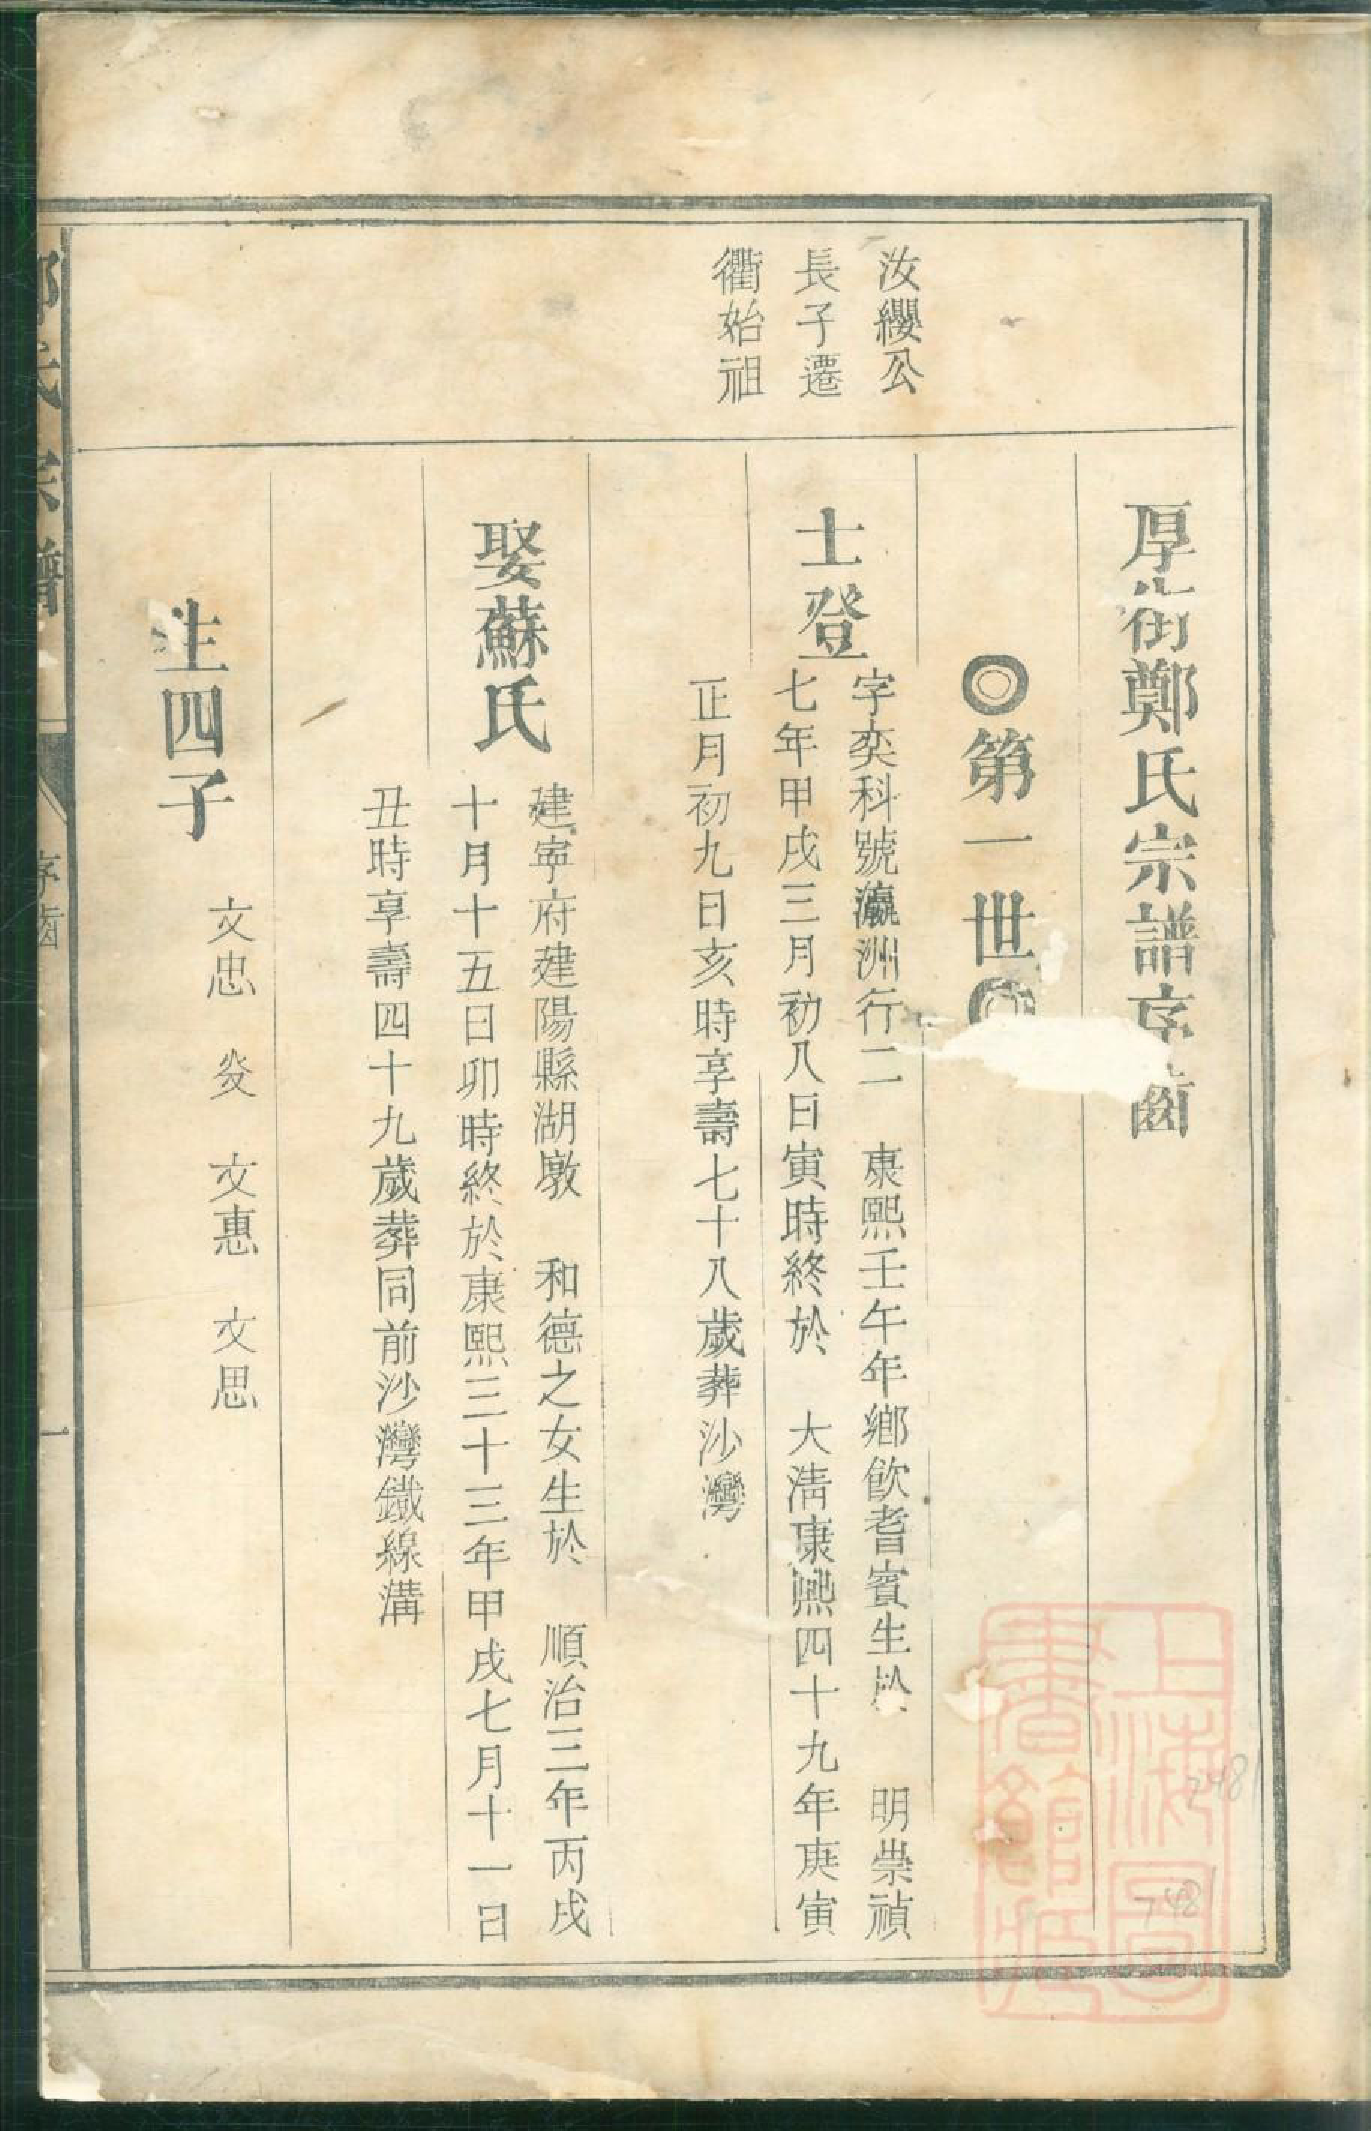 厚街鄭氏宗譜序齒
◎第一世◎
汝纓公
長子遷
衢始祖
士登
字奕科號瀛洲行二 康熙壬午年鄉飲耆賓生於 明崇禎
七年甲戌三月初八日寅時終於 大清康熙四十九年庚寅
正月初九日亥時享壽七十八歲葬沙灣
娶蘇氏
建寧府建陽縣湖墩 和德之女生於 順治三年丙戌
十月十五日卯時終於康熙三十三年甲戌七月十一日
丑時享壽四十九歲葬同前沙灣鐵線溝
生四子
文忠 炎 文惠 文思
氏宗譜
序齒
一
上海圖
書館藏
7481
7481